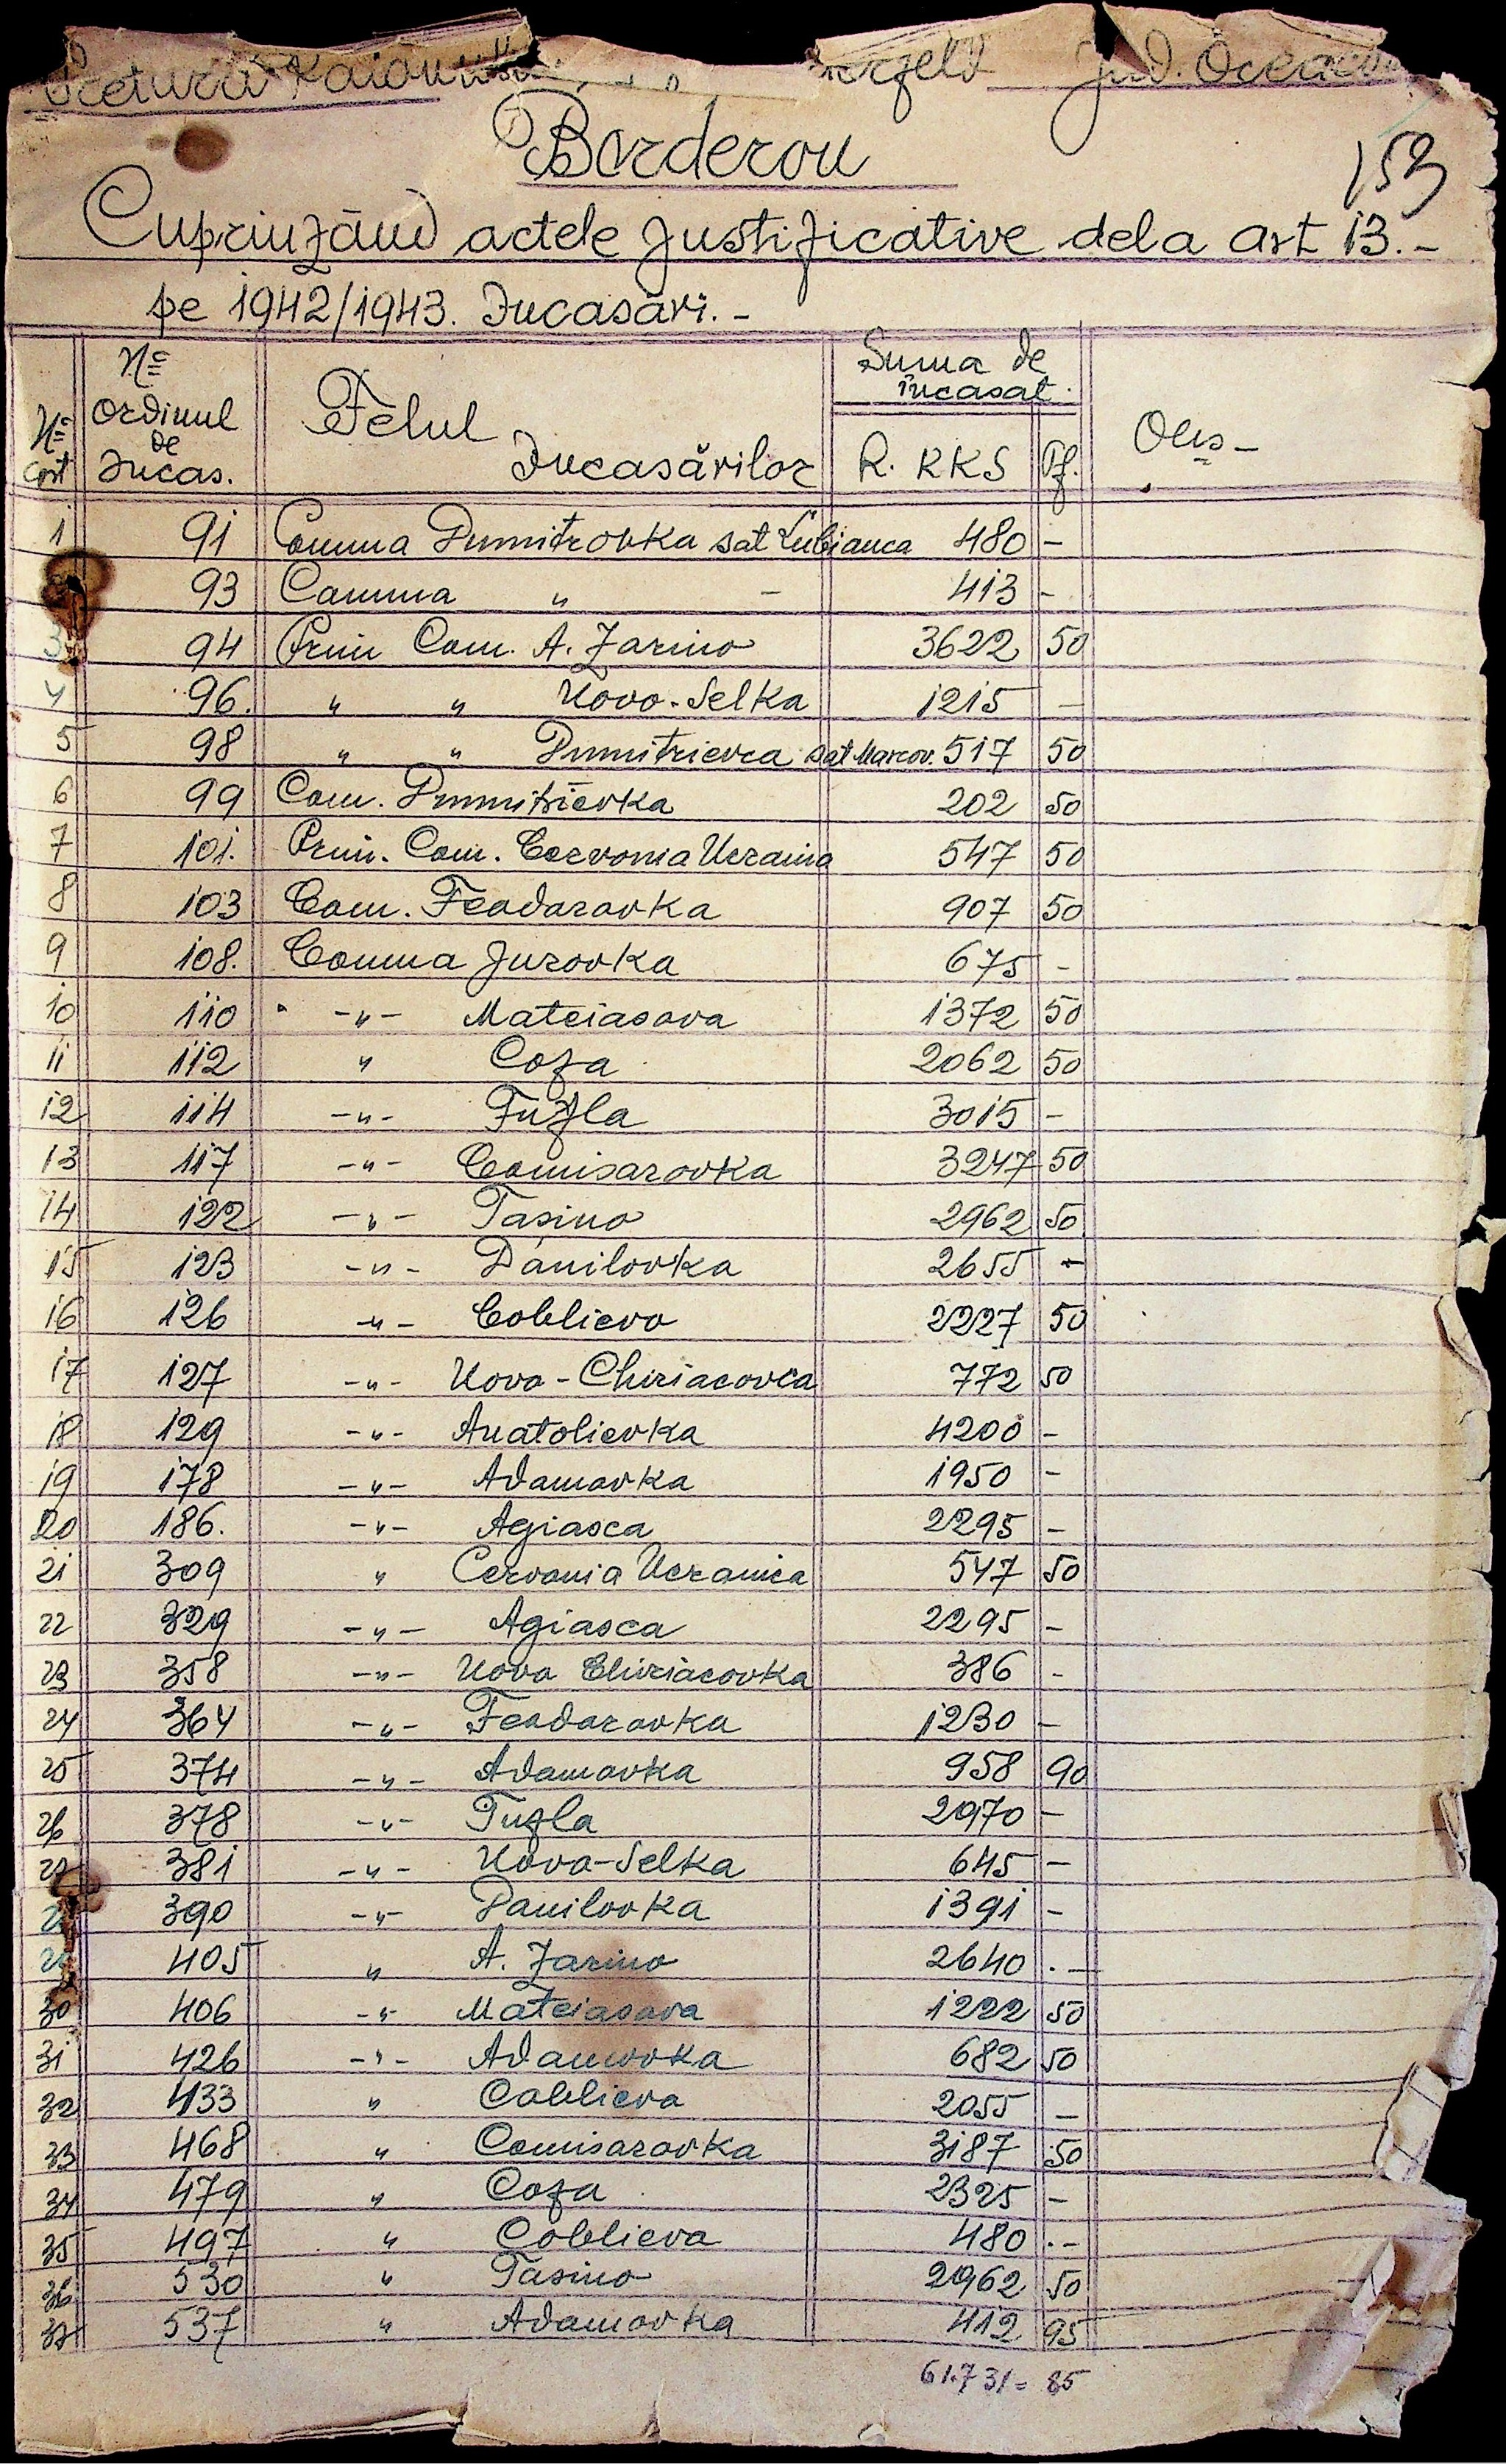 Pretura Raionu rfeld Jud. Oceacov
Borderou
153
Cuprinzând actele justificative dela art 13.-
pe 1942/1943. Încasări.-
Nr. crt Nr. Ordinul de Incas. Felul Incasărilor Suma de încasat. R.KKS Pf. Obs-
1 91 Comuna Dumitrovka sat Lubianca 480 -
93 Comuna " - 413 -
3 94 Prim Com. A. Zarino 3622 50
4 96. " " Novo-Selka 1215 -
5 98 " " Dumitrievca sat Marcov. 517 50
6 99 Com. Dumitrievka 202 50
7 101. Prim. Com. Cervonia Ucraina 547 50
8 103 Com. Feodarovka 907 50
9 108. Comuna Jurovka 675 -
10 110 -"- Mateiasova 1372 50
11 112 " Coza 2062 50
12 114 -"- Tuzla 3015 -
13 117 -"- Comisarovka 3247 50
14 122 -"- Tasino 2962 50
15 123 -"- Danilovka 2655 -
16 126 -"- Coblievo 2227 50
17 127 -"- Novo-Chiriacovca 772 50
18 129 -"- Anatolievka 4200 -
19 178 -"- Adamovka 1950 -
20 186. -"- Agiasca 2295 -
21 309 " Cervonia Ucrainica 547 50
22 329 -"- Agiasca 2295 -
23 358 -"- Novo Chiriacovka 386 -
24 364 -"- Feodarovka 1230 -
25 374 -"- Adamovka 958 90
26 378 -"- Tuzla 2970 -
27 381 -"- Novo-Selka 645 -
390 -"- Danilovka 1391 -
405 " A. Zarino 2640 .-
30 406 -"- Mateiasova 1222 50
31 426 -"- Adamovka 682 50
32 433 " Coblieva 2055 -
33 468 " Comisarovka 3187 50
34 479 " Coza 2325 -
35 497 " Coblieva 480 .-
36 530 " Tasino 2962 50
37 537 " Adamovka 412 95
61.731= 85